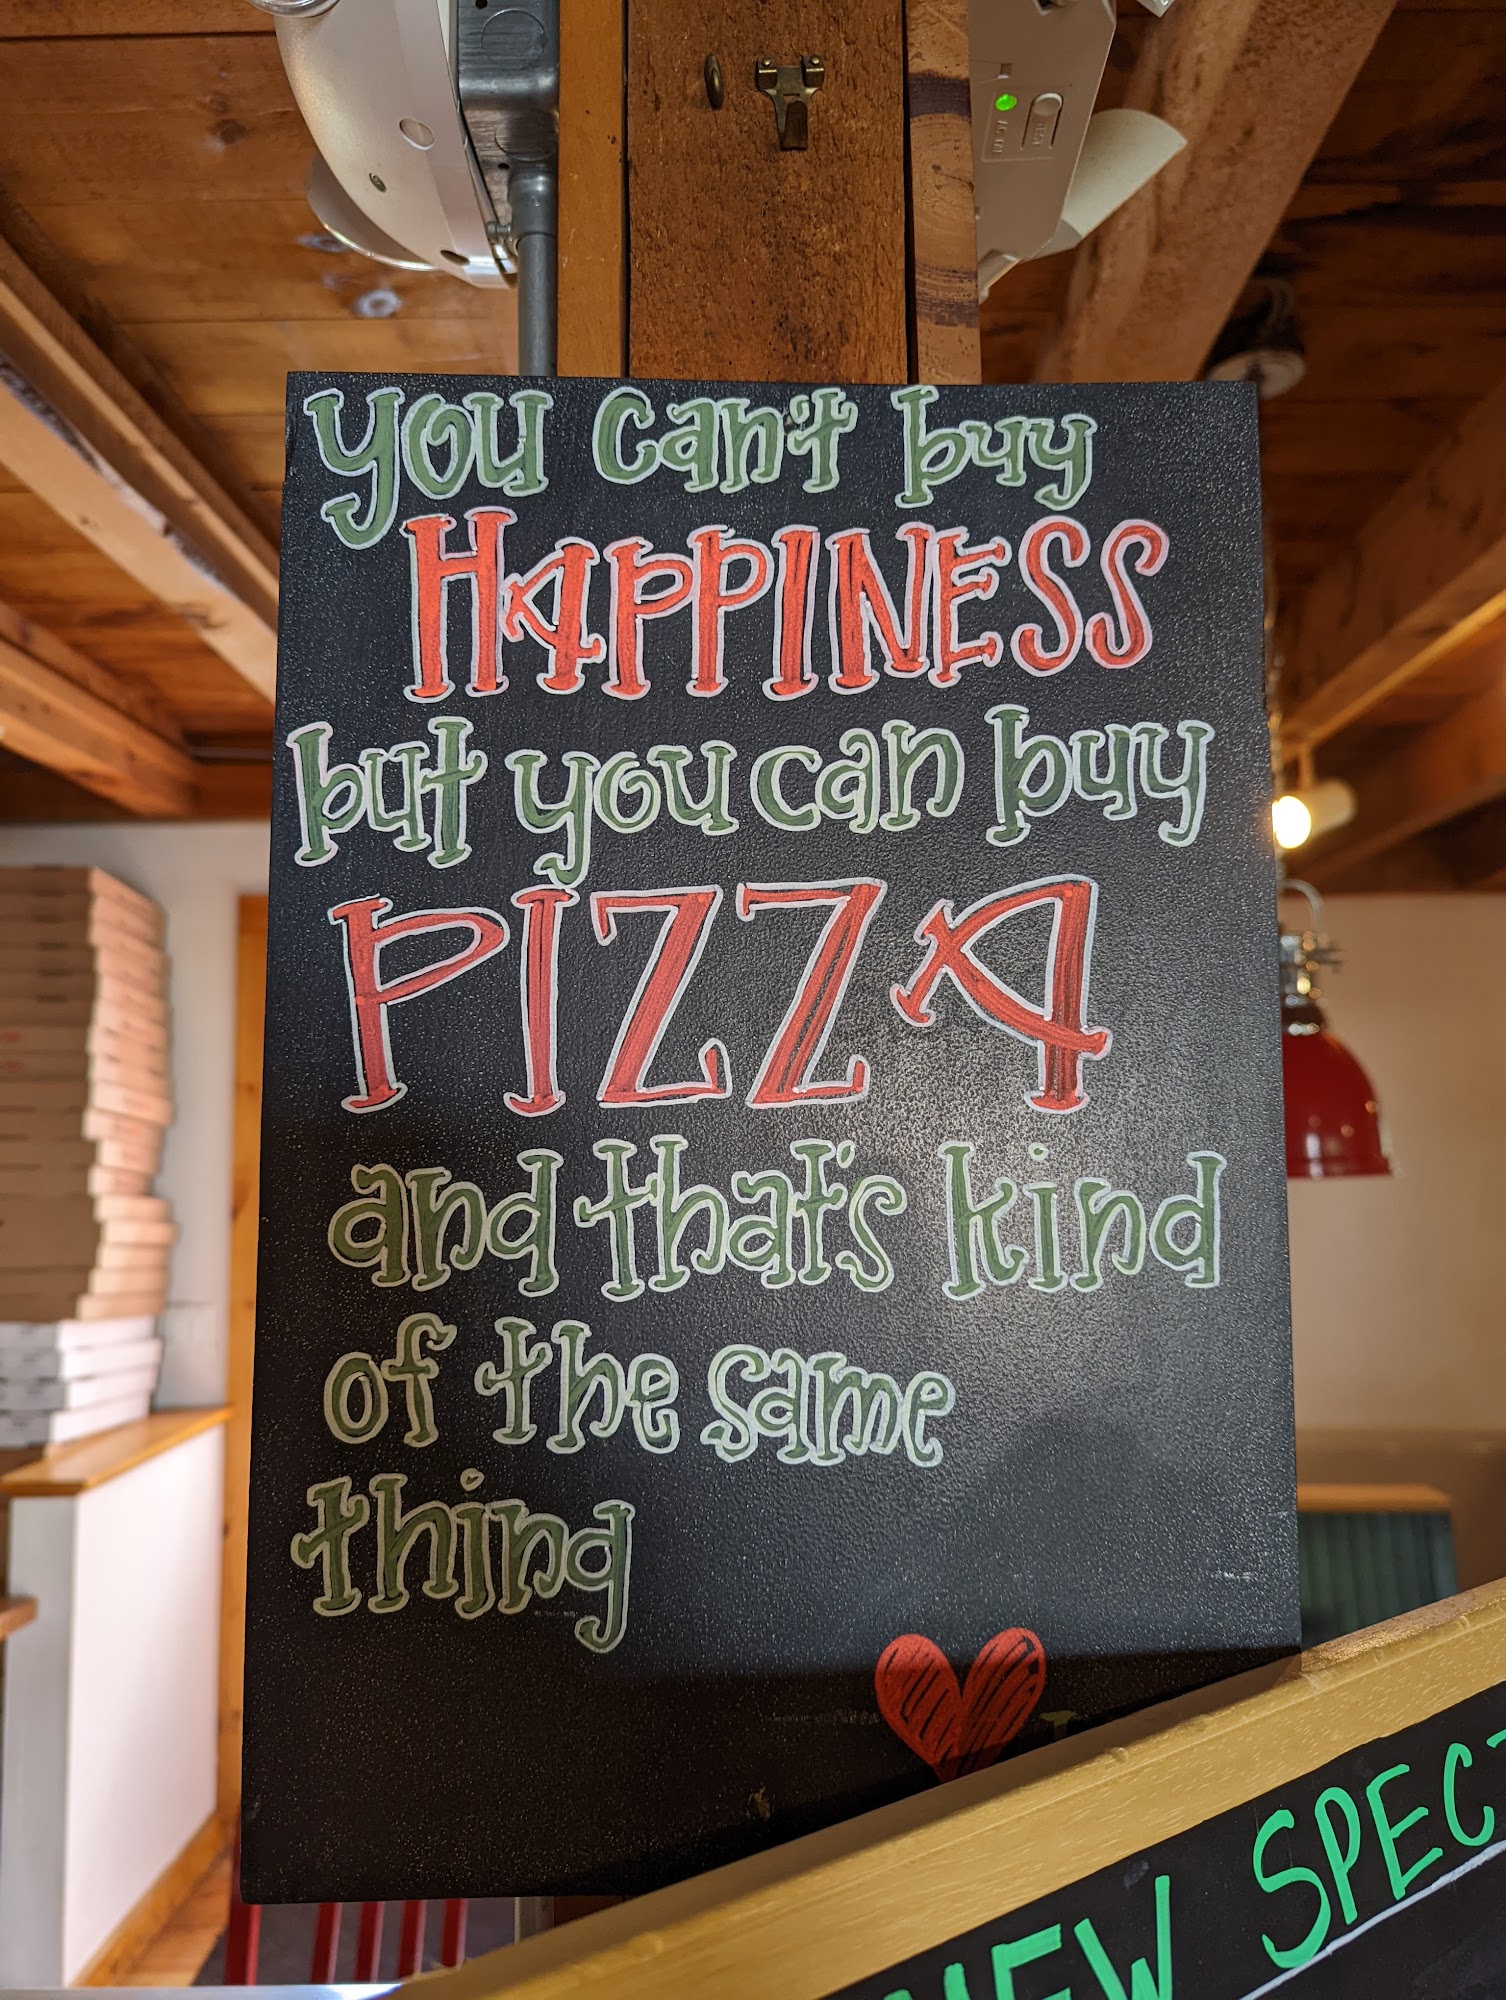 you can't buy
HAPPINESS
but you can buy
PIZZA
and that's kind
of the same
thing
NEW SPEC
AC ON
TEST